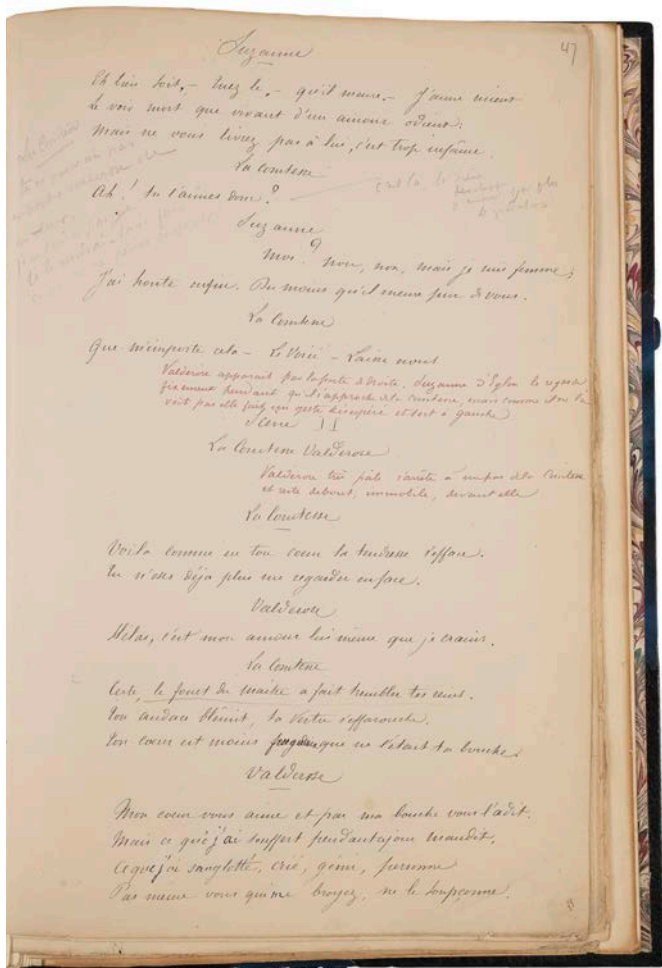 47
Suzanne
Eh bien soit, – tuez le, – qu'il meure. – J'aime mieux
Le voir mort que vivant d'un amour odieux;
Mais ne vous livrez pas à lui, c'est trop infâme.
La Comtesse
Ah! tu l'aimes donc?
Suzanne
Moi? non, non, mais je suis femme;
J'ai honte enfin. Du moins qu'il meure pur de vous.
La Comtesse
Que m'importe cela – Le Voici – Laisse nous
Valderose apparait par la porte de droite. Suzanne d'Eglou le regarde
fixement pendant qu'il s'approche de la Comtesse, mais comme il ne la
voit pas elle fait un geste désespéré et sort à gauche
Scene II
La Comtesse Valderose
Valderose très pâle s'arrête à un pas de la Comtesse
et reste debout, immobile, devant elle
La Comtesse
Voilà comme en ton coeur la tendresse s'efface.
Tu n'oses déjà plus me regarder en face.
Valderose
Hélas, c'est mon amour lui même que je crains.
La Comtesse
Certe, le fouet du maître a fait trembler tes reins.
Ton audace blêmit, ta vertu s'effarouche.
Ton coeur est moins que ne l'était ta bouche.
Valderose
Mon coeur vous aime et par ma bouche vous l'a dit.
Mais ce que j'ai souffert pendant ce jour maudit,
Ce que j'ai sanglotté, crié, gémi, personne
Pas même vous qui me broyez, ne le soupçonne.